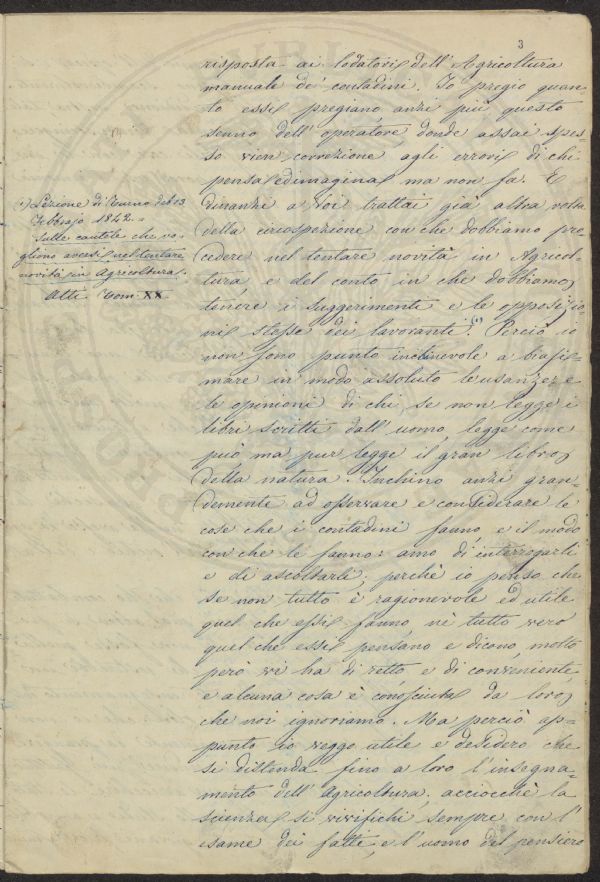 3
risposta ai lodatori dell'Agricoltura
manuale de' contadini. Io pregio quan-
to essi pregiano anzi più questo
senno dell'operatore, donde assai spes-
so vien correzione agli errori di chi
pensa ed imagina ma non fa. E
dinanzi a voi trattai già altra volta
della circospezione con che dobbiamo pro
cedere nel tentare novità in Agricol-
tura, e del conto in che dobbiamo
tenere i suggerimenti e le opposizio
ni stesse dei lavoranti (1). Perciò io
non sono punto inchinevole a biasi-
mare in modo assoluto le usanze, e
le opinioni di chi, se non legge i
libri scritti dall'uomo, legge come
può, ma pur legge il gran libro
della natura. Inchino anzi gran-
demente ad osservare e considerare le
cose che i contadini fanno, e il modo
con che le fanno: amo di interrogarli
e di ascoltarli; perchè io penso che
se non tutto è ragionevole ed utile
quel che essi fanno, nè tutto vero
quel che essi pensano e dicono, molto
però vi ha di retto e di conveniente
e alcuna cosa è conosciuta da loro,
che noi ignoriamo. Ma perciò ap-
punto io veggo utile e desidero che
si distenda fino a loro l'insegna-
mento dell'Agricoltura; acciocchè la
scienza si vivifichi sempre con l'
esame dei fatti, e l'uomo del pensiero
(1) Lezione di Cuneo del 13
Febbrajo 1842.
Sulle cautele che vo-
gliono aversi nel tentare
novità in Agricoltura.
Atti Tom. XX.